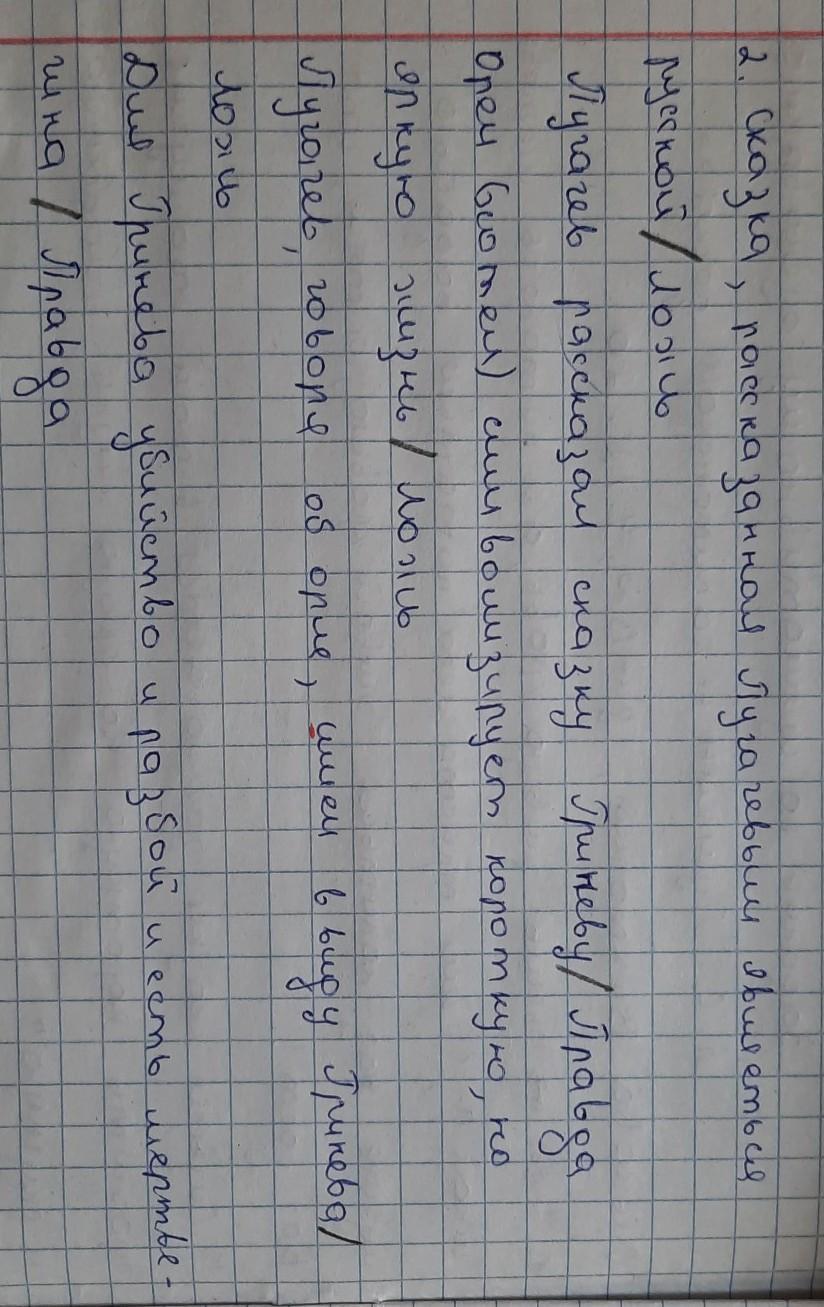 2. Сказка, рассказанная Пугачевым являеться
русской/Ложь
Пугачев рассказал сказку Гриневу/Правда
Орел (вотем) символизирует короткую, но
яркую жизнь/Ложь
Пугачев, говоря об орле, имел ввиду Гринева/
Ложь
Для Гринева убийство и разбой и есть мертве-
чина/Правда